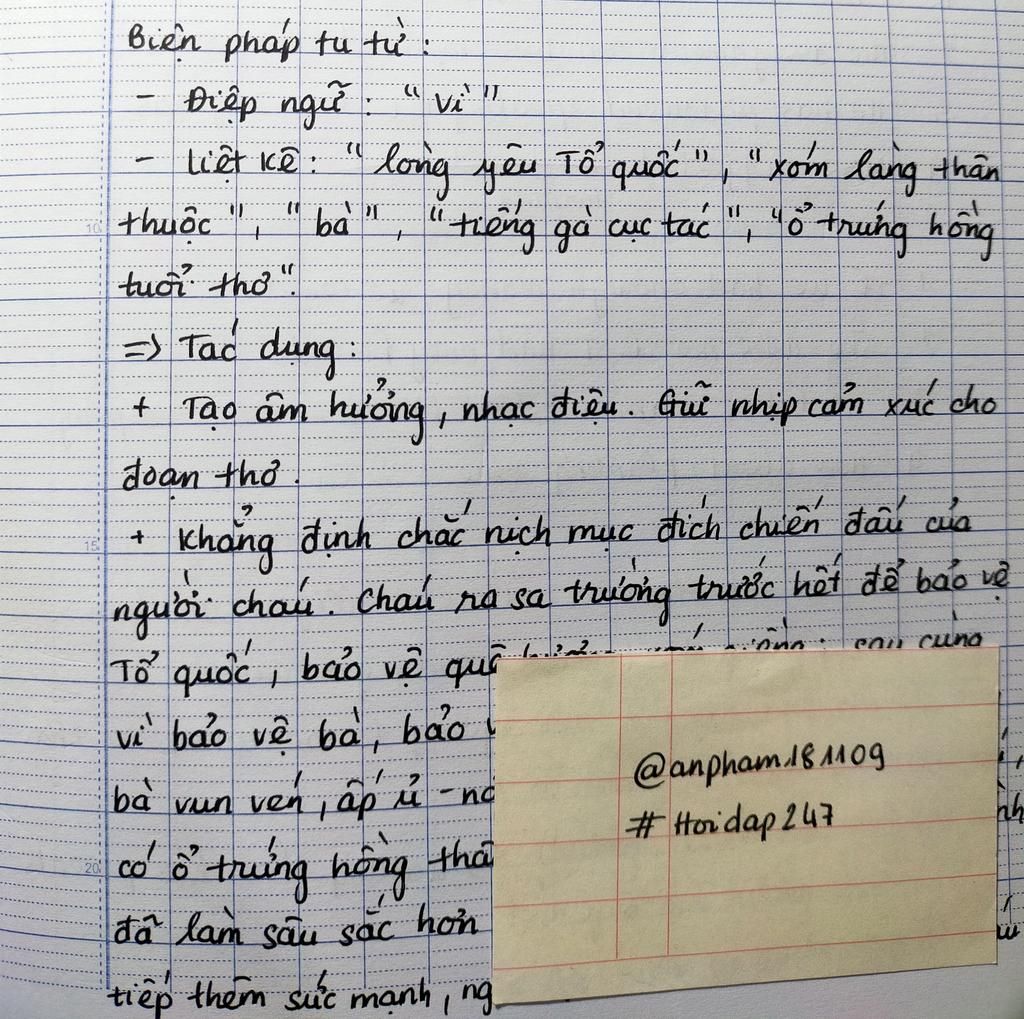 Biện pháp tu từ :
- Điệp ngữ : "vì"
- Liệt kê : "lòng yêu Tổ quốc", "xóm làng thân
thuộc", "bà", "tiếng gà cục tác", "ổ trứng hồng
tuổi thơ".
=> Tác dụng :
+ Tạo âm hưởng, nhạc điệu. Giữ nhịp cảm xúc cho
đoạn thơ.
+ Khẳng định chắc nịch mục đích chiến đấu của
người cháu. Cháu ra sa trường trước hết để bảo vệ
Tổ quốc, bảo vệ cùng
vì bảo vệ bà, bảo
bà vun vén, ấp ủ -
có ổ trứng hồng
đã làm sâu sắc hơn
tiếp thêm sức mạnh,
@anpham181109
#Hoidap247
10
15
20